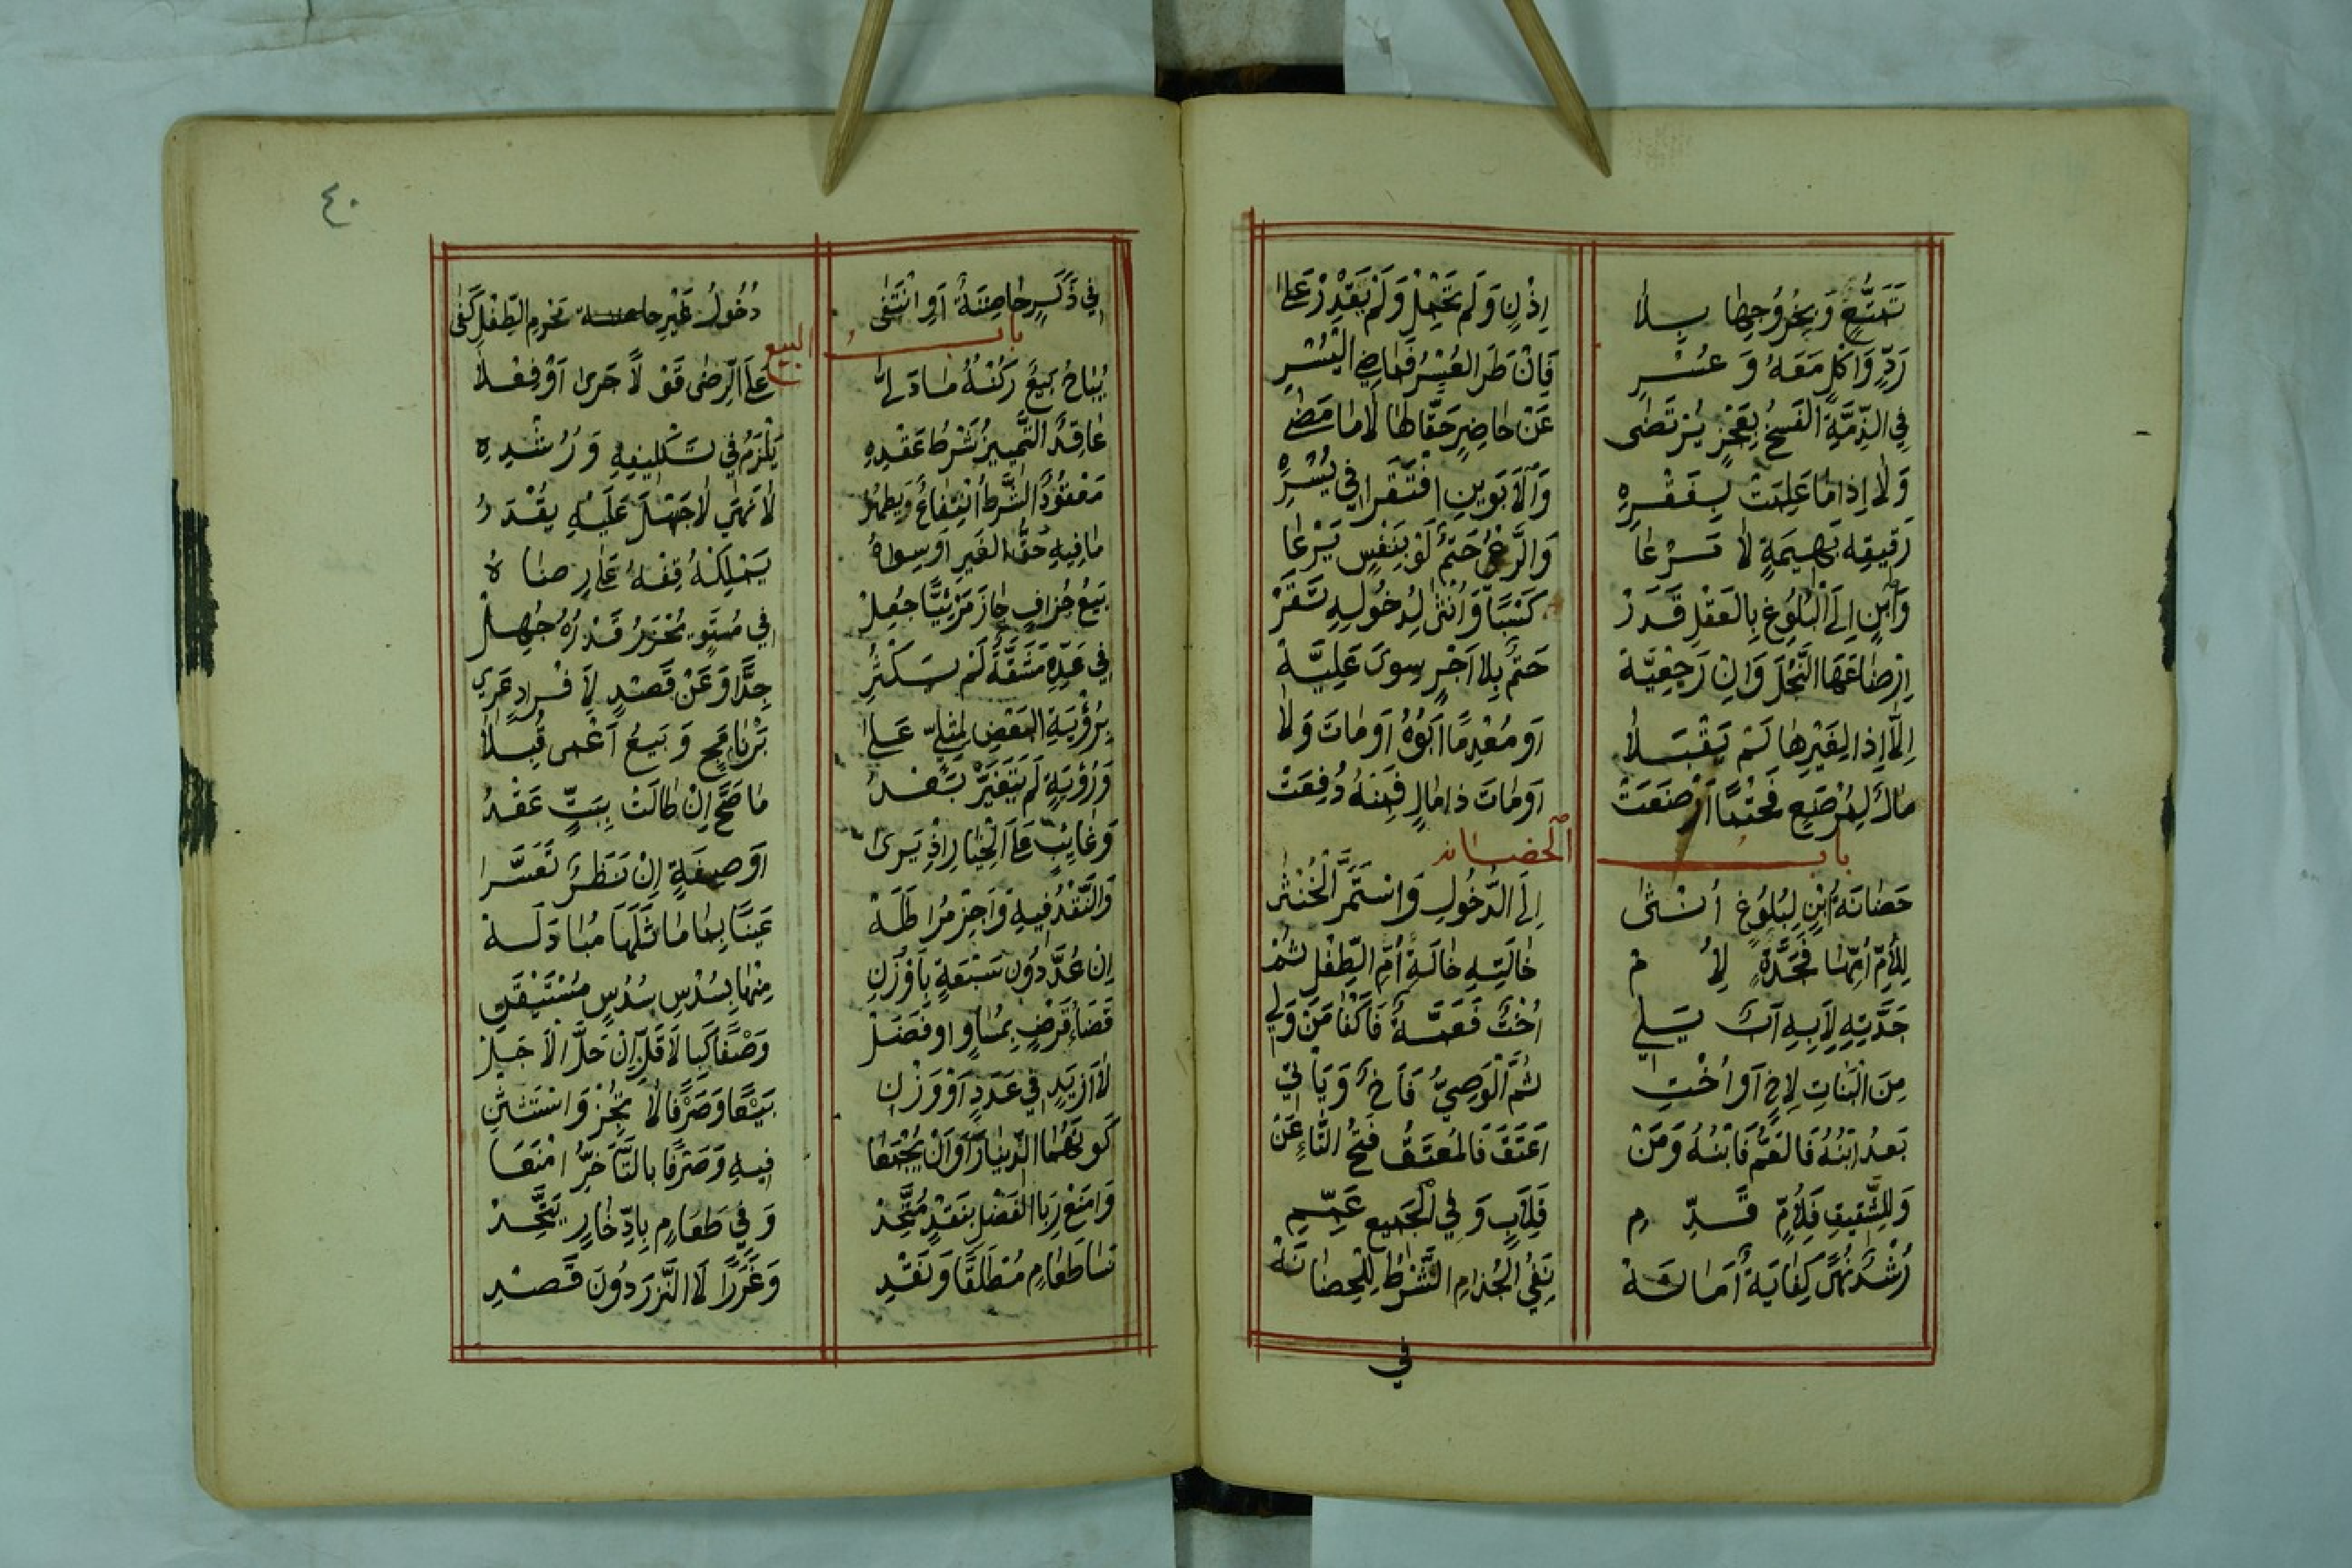 تَمَتُّعٍ وَبِخُرُوجِهَا بِلَا إِذْنٍ وَلَمْ تَحْمِلْ وَلَمْ يَقْدِرْ عَلَى
رَدٍّ وَاكْلٍ مَعَهُ وَعُسْرِ فَإِنْ طَرَ العُسْرُ فَمَاضِي اليُسْرِ
فِي الذِّمَّةِ الفَسْخُ بِعَجْزٍ يُرْتَضَى عَنْ حَاضِرٍ حَقًّا لَهَا لَا مَا مَضَى
وَلَا إِذَا مَا عَلِمَتْ بِفَقْرِهِ وَالْأَبَوَيْنِ افْتَقَرَا فِي يُسْرِهِ
رَقِيقِهِ بَهِيمَةٍ لَا مَرْعَا حَتْمٌ لَوْ بِنَفْسٍ يَرْعَا
وَابْنٍ إِلَى الْبُلُوغِ بِالعَقْلِ قَدَرْ كَسْبًا وَأُنْثَى لِدُخُولِهِ تَقَرْ
إِرْضَاعَهَا النَّجْلَ وَإِنْ رَجْعِيَّهْ حَتْمٌ بِلَا أَجْرٍ سِوَى عَلِيَّهْ
إِلَّا إِذَا لِغَيْرِهَا لَمْ يَقْبَلَا أَو مُعْدِمًا أَبُوهُ أَو مَاتَ وَلَا
مَالَ لِمُرْضَعٍ فَحَتْمًا أَرْضَعَتْ أَو مَاتَ ذَا مَالٍ فَمِنْهُ دُفِعَتْ
بابُ الْحَضَانه
حَضَانَةُ ابْنٍ لِبُلُوغٍ أُنْثَى إِلَى الدُّخُولِ وَاسْتَمَرَّ الْخُنْثَى
لِلْأُمِّ أُمِّهَا فَجَدَّةٍ لِأُمْ خَالَتِهِ خَالَةِ أُمِّ الطِّفْلِ ثُمْ
جَدَّتِهِ لِأَبِيهِ أَبٌ يَلِي أُخْتٌ فَعَمَّةٌ فَأَكْفَا مَنْ وَلِي
مِنَ الْبَنَاتِ لِأَخٍ أَو أُخْتِ ثُمَّ الْوَصِيُّ فَأَخٌ وَيَأْتِي
بَعْدُ ابْنُهُ فَالعَمُّ فَابْنُهُ وَمَنْ أَعْتَقَ فَالمُعْتَقُ فَتْحُ التَّاءِ عَنْ
وَلِلشَّقِيقِ فَلِأُمٍّ قَدِّمِ فَلِأَبٍ وَفِي الْجَمِيعِ عَمِّمِ
رُشْدٌ نُهًى كِفَايَةٌ أَمَانَهْ نَفْيُ الجُذَامِ الشَّرْطُ لِلْحَضَانَهْ
في
٤٠
فِي ذَكَرٍ حَاضِنَةٌ أَوِ انْتَفَى دُخُولُ غَيْرِ مَحْرَمِ الطِّفْلِ كَفَى
بابُ البيع
يُبَاحُ بَيْعٌ رُكْنُهُ مَا دَلَّ عَلَى الرِّضَى قَوْلًا جَرَى أَوْ فِعْلَا
عَاقِدٌ التَّمْيِيزُ شَرْطُ عَقْدِهِ يَلْزَمُ فِي تَكْلِيفِهِ وَرُشْدِهِ
مَعْقُودٌ الشَّرْطُ انْتِفَاعٌ وَيَطْهُرُ لَا نَهْيَ لَا جَهْلَ عَلَيْهِ يُقْدَرُ
مَا فِيهِ حَقُّ الغَيْرِ أَو سِوَاهُ يَمْلِكُهُ قِفْهُ عَلَى رِضَاهُ
بَيْعُ جُزَافٍ جَازَ مَرْئِيًّا جُعِلْ فِي مُسْتَوٍ يُحْزَرُ قَدْرُهُ جُهِلْ
فِي عَدِّهِ مَشَقَّةٌ لَمْ يَكْثُرِ جِدًّا وَعَنْ قَصْدٍ لِأَفْرَادٍ عَرِي
بِرُؤْيَةِ البَعْضِ لِمِثْلِيٍّ عَلَى بَرْنَامَجٍ وَبَيْعُ أَعْمَى قُبِلَا
وَرُؤْيَةٍ لَمْ يَتَغَيَّرْ بَعْدُ مَا صَحَّ إِنْ طَالَتْ بِبَتٍّ عَقْدُ
وَغَائِبٌ عَلَى الْخِيَارِ إِذْ يَرَى أَو صِفَةٍ إِنْ نَظَرٌ تَعَسَّرَا
وَالنَّقْدُ فِيهِ وَأَجِزْ مُرَاطَلَهْ عَيْنًا بِمَا مَاثَلَهَا مُبَادَلَهْ
إِن عُدَّ دُونَ سَبْعَةٍ بِأَوْزَنِ مِنْهَا بِسُدْسٍ سُدُسٍ مُسْتَيْقَنِ
قَضَاءُ قَرْضٍ بِمُسَاوٍ أَو فَضَلْ وَصْفًا كَبِالأَقَلِّ إِنْ حَلَّ الأَجَلْ
لَا أَزْيَدٍ فِي عَدَدٍ أَوْ وَزْنِ بَيْعًا وَصَرْفًا لَا يَجُزْ وَاسْتَثْنِ
كَو نَهُمَا الدِّينَارَ أَوَ انْ يُجْمَعَا فِيهِ وَصَرْفًا بِالتَّأَخُّرِ امْنَعَا
وَامْنَعْ رِبَا الفَضْلِ بِنَقْدٍ مُتَّحِدْ وَفِي طَعَامٍ بِادِّخَارٍ يَتَّحِدْ
نَسَا طَعَامٍ مُطْلَقًا وَنَقْدِ وَغَرَرًا لَا النَّزْرَ دُونَ قَصْدِ